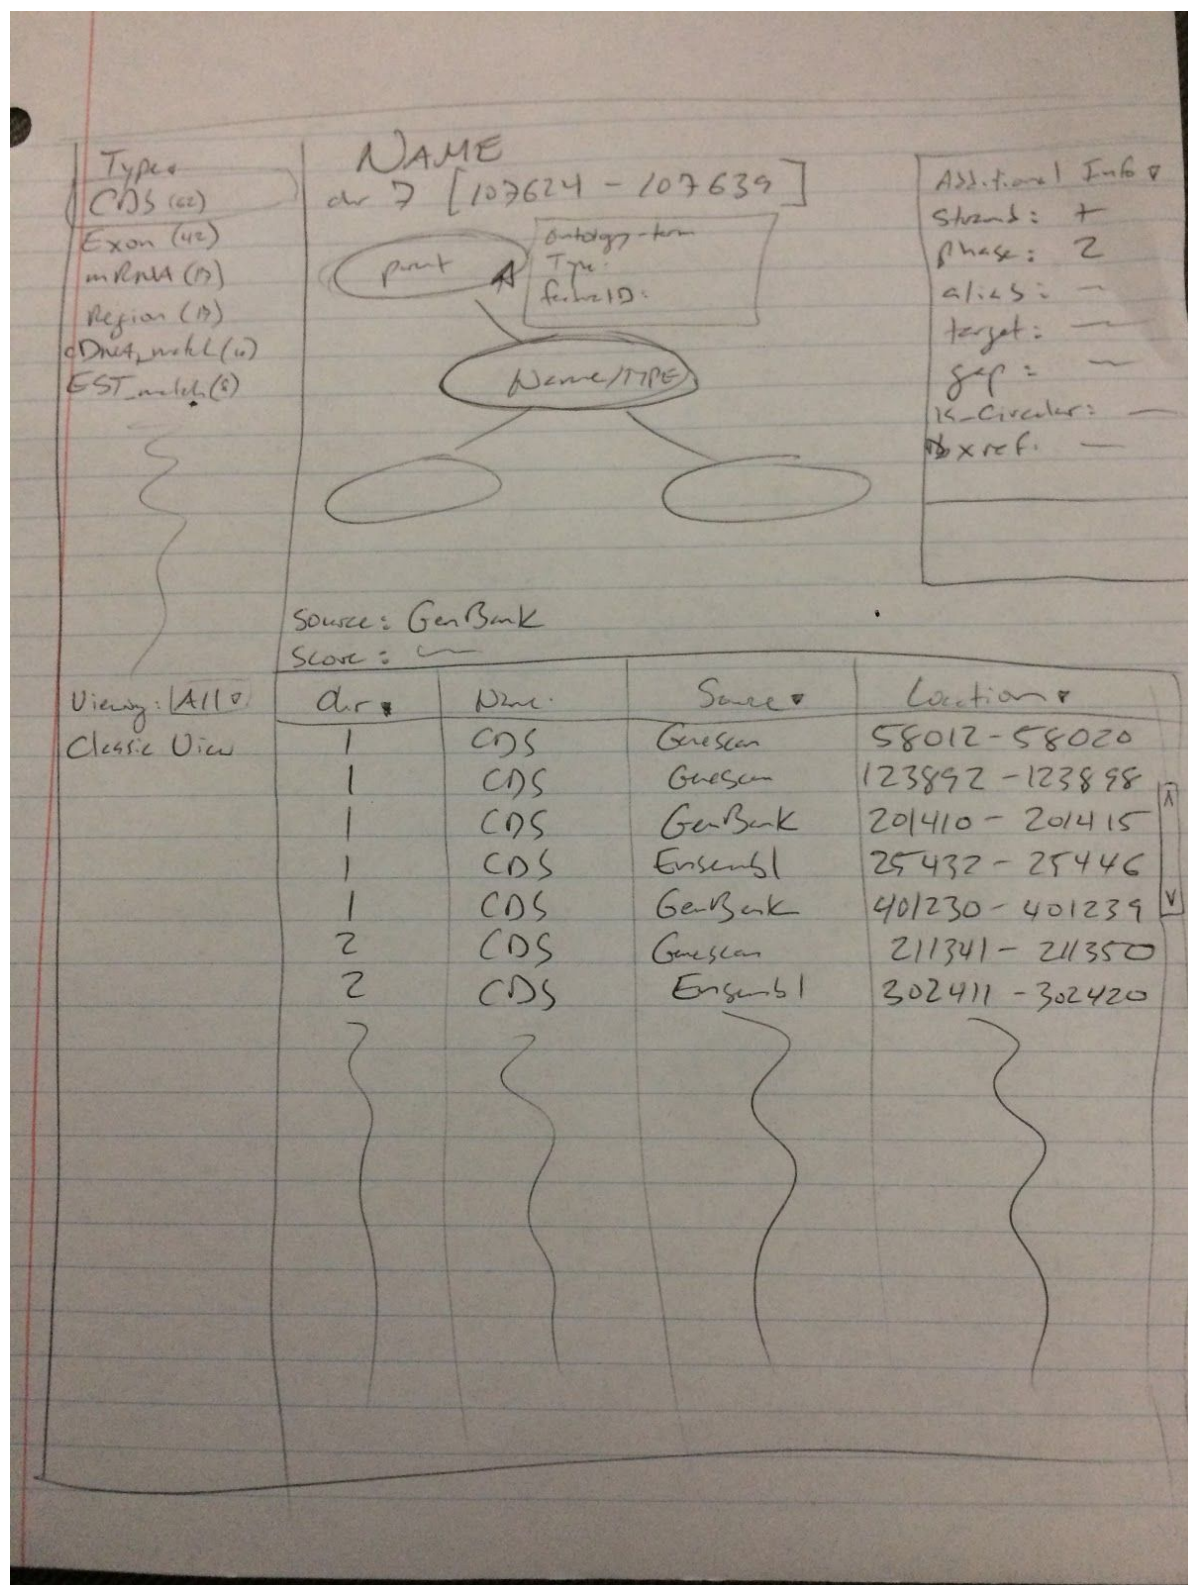 Types
CDS (62)
Exon (42)
mRNA (17)
Region (17)
cDNA_match (10)
EST_match (8)
NAME
chr 7 [107624 - 107639]
parent
Ontology-term
Type:
featureID:
Name/TYPE
Additional Info
Strand: +
phase: 2
alias: —
target: —
gap: —
is_Circular: —
Dbxref: —
Source: GenBank
Score: —
Viewing: All
Classic View
chr Name Source Location
1 CDS Genescan 58012-58020
1 CDS Genescan 123892-123898
1 CDS GenBank 201410-201415
1 CDS Ensembl 25432-25446
1 CDS GenBank 401230-401239
2 CDS Genescan 211341-211350
2 CDS Ensembl 302411-302420